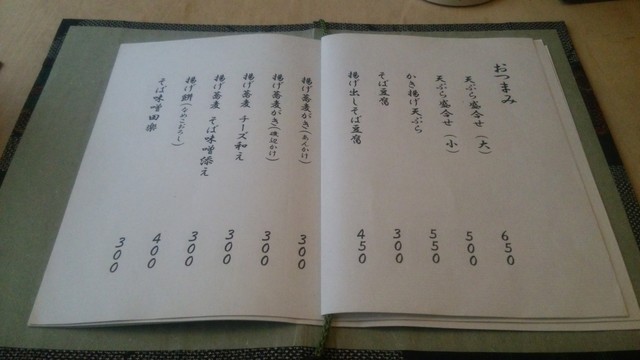 おつまみ
天ぷら盛合せ(大) 650
天ぷら盛合せ(小) 500
かき揚げ天ぷら 550
そば豆腐 300
揚げ出しそば豆腐 450
揚げ蕎麦がき(あんかけ) 300
揚げ蕎麦がき(磯辺かけ) 300
揚げ蕎麦 チーズ和え 300
揚げ蕎麦 そば味噌添え 300
揚げ餅(なめこおろし) 400
そば味噌田楽 300